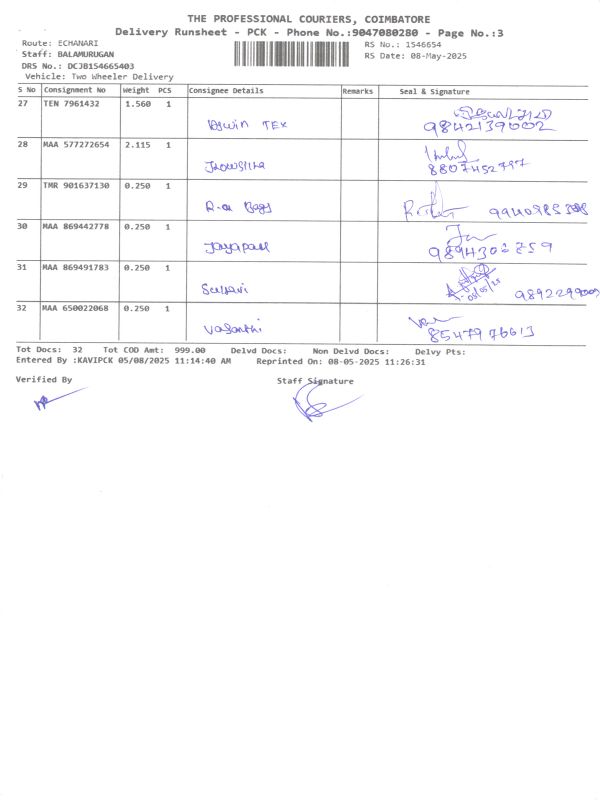 THE PROFESSIONAL COURIERS, COIMBATORE
Delivery Runsheet - PCK - Phone No.:9047080280 - Page No.:3
Route: ECHANARI RS No.: 1546654
Staff: BALAMURUGAN RS Date: 08-May-2025
DRS No.: DCJB154665403
Vehicle: Two Wheeler Delivery
S No Consignment No Weight PCS Consignee Details Remarks Seal & Signature
27 TEN 7961432 1.560 1
TEX 9842139002
28 MAA 577272654 2.115 1
8807452797
29 TMR 901637130 0.250 1
Bags
30 MAA 869442778 0.250 1
Jayapaul
31 MAA 869491783 0.250 1
08/05/25
32 MAA 650022068 0.250 1
Vasanthi 8547976613
Tot Docs: 32 Tot COD Amt: 999.00 Delvd Docs: Non Delvd Docs: Delvy Pts:
Entered By :KAVIPCK 05/08/2025 11:14:40 AM Reprinted On: 08-05-2025 11:26:31
Verified By Staff Signature